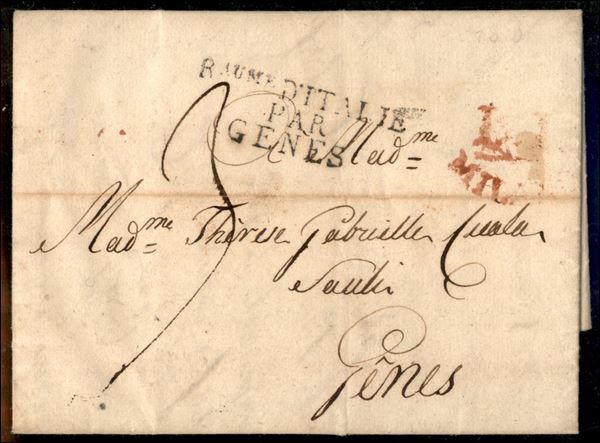 RAUME D'ITALIE
PAR
GENES
3
A Madme
Madme Thérèse Gabrielle
Saulis
Gênes